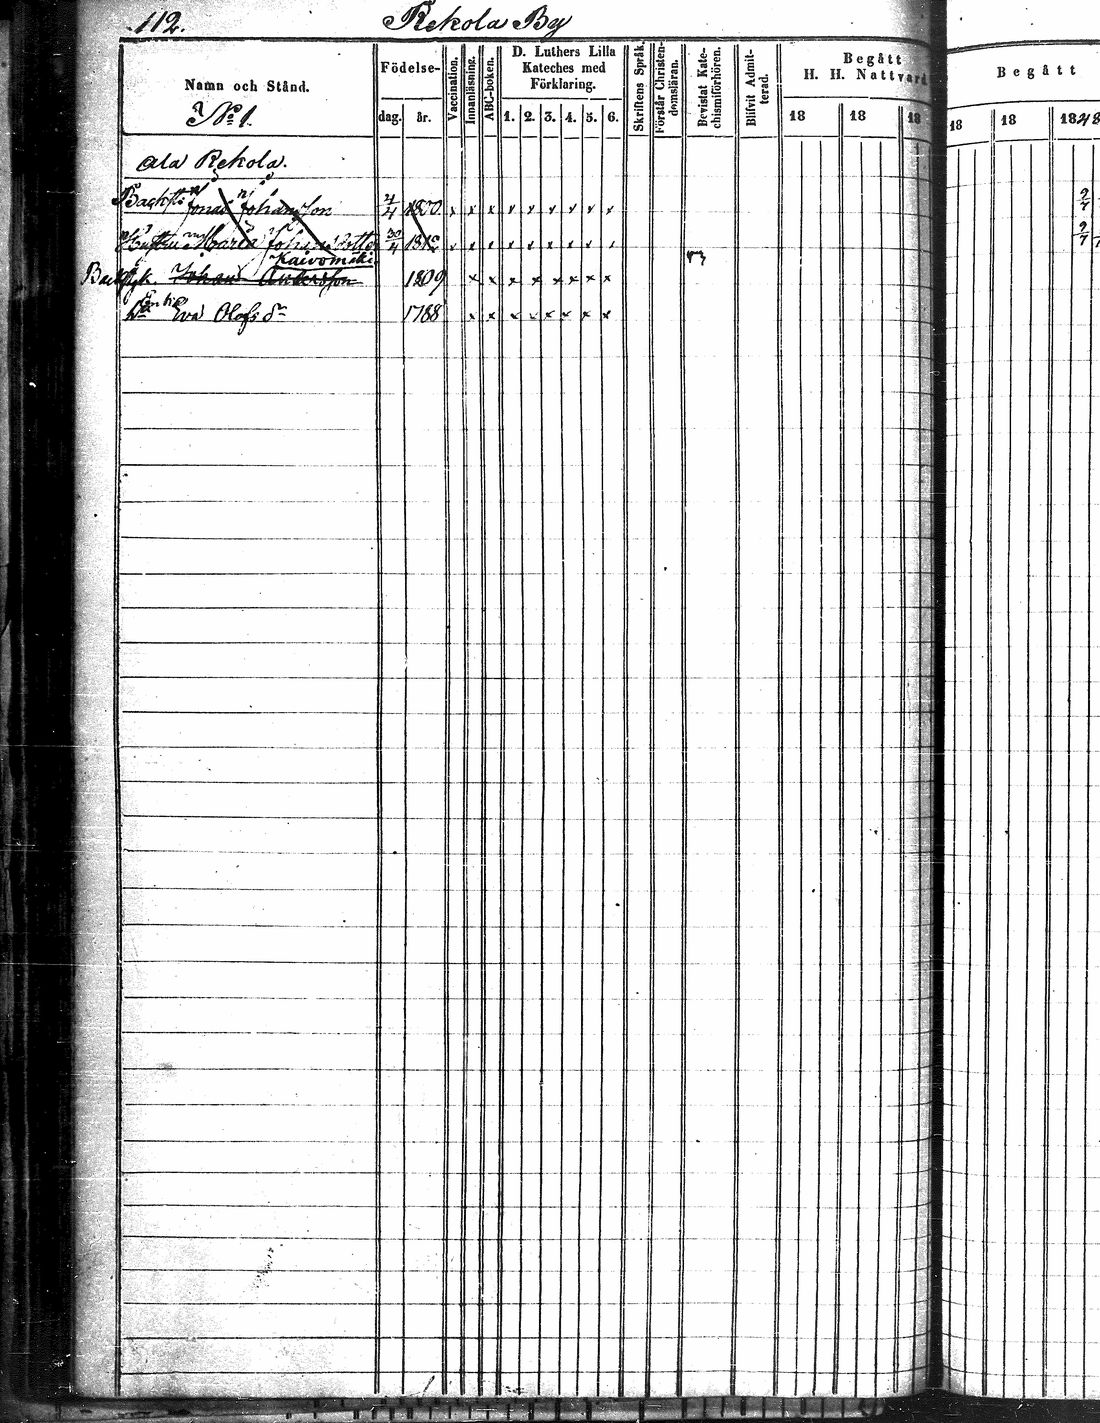 112. Rekola By
Namn och Stånd.
No 1.
Födelse-
dag. år.
Vaccination.
Innanläsning.
ABC-boken.
D. Luthers Lilla
Kateches med
Förklaring.
1. 2. 3. 4. 5. 6.
Skriftens Språk.
Förstår Christen-
domsläran.
Bevistat Kate-
chismiförhören.
Blifvit Admit-
terad.
Begått
H. H. Nattvard
18 18 18
Begått
18 18 1848
Ala Rekola.
Jonas Johansson 4/4 1800
Hustru Maria Johansdotter 30/4 1812
Kaivomäki
Johan Andersson 1809
Enka Eva Olofsdr 1788